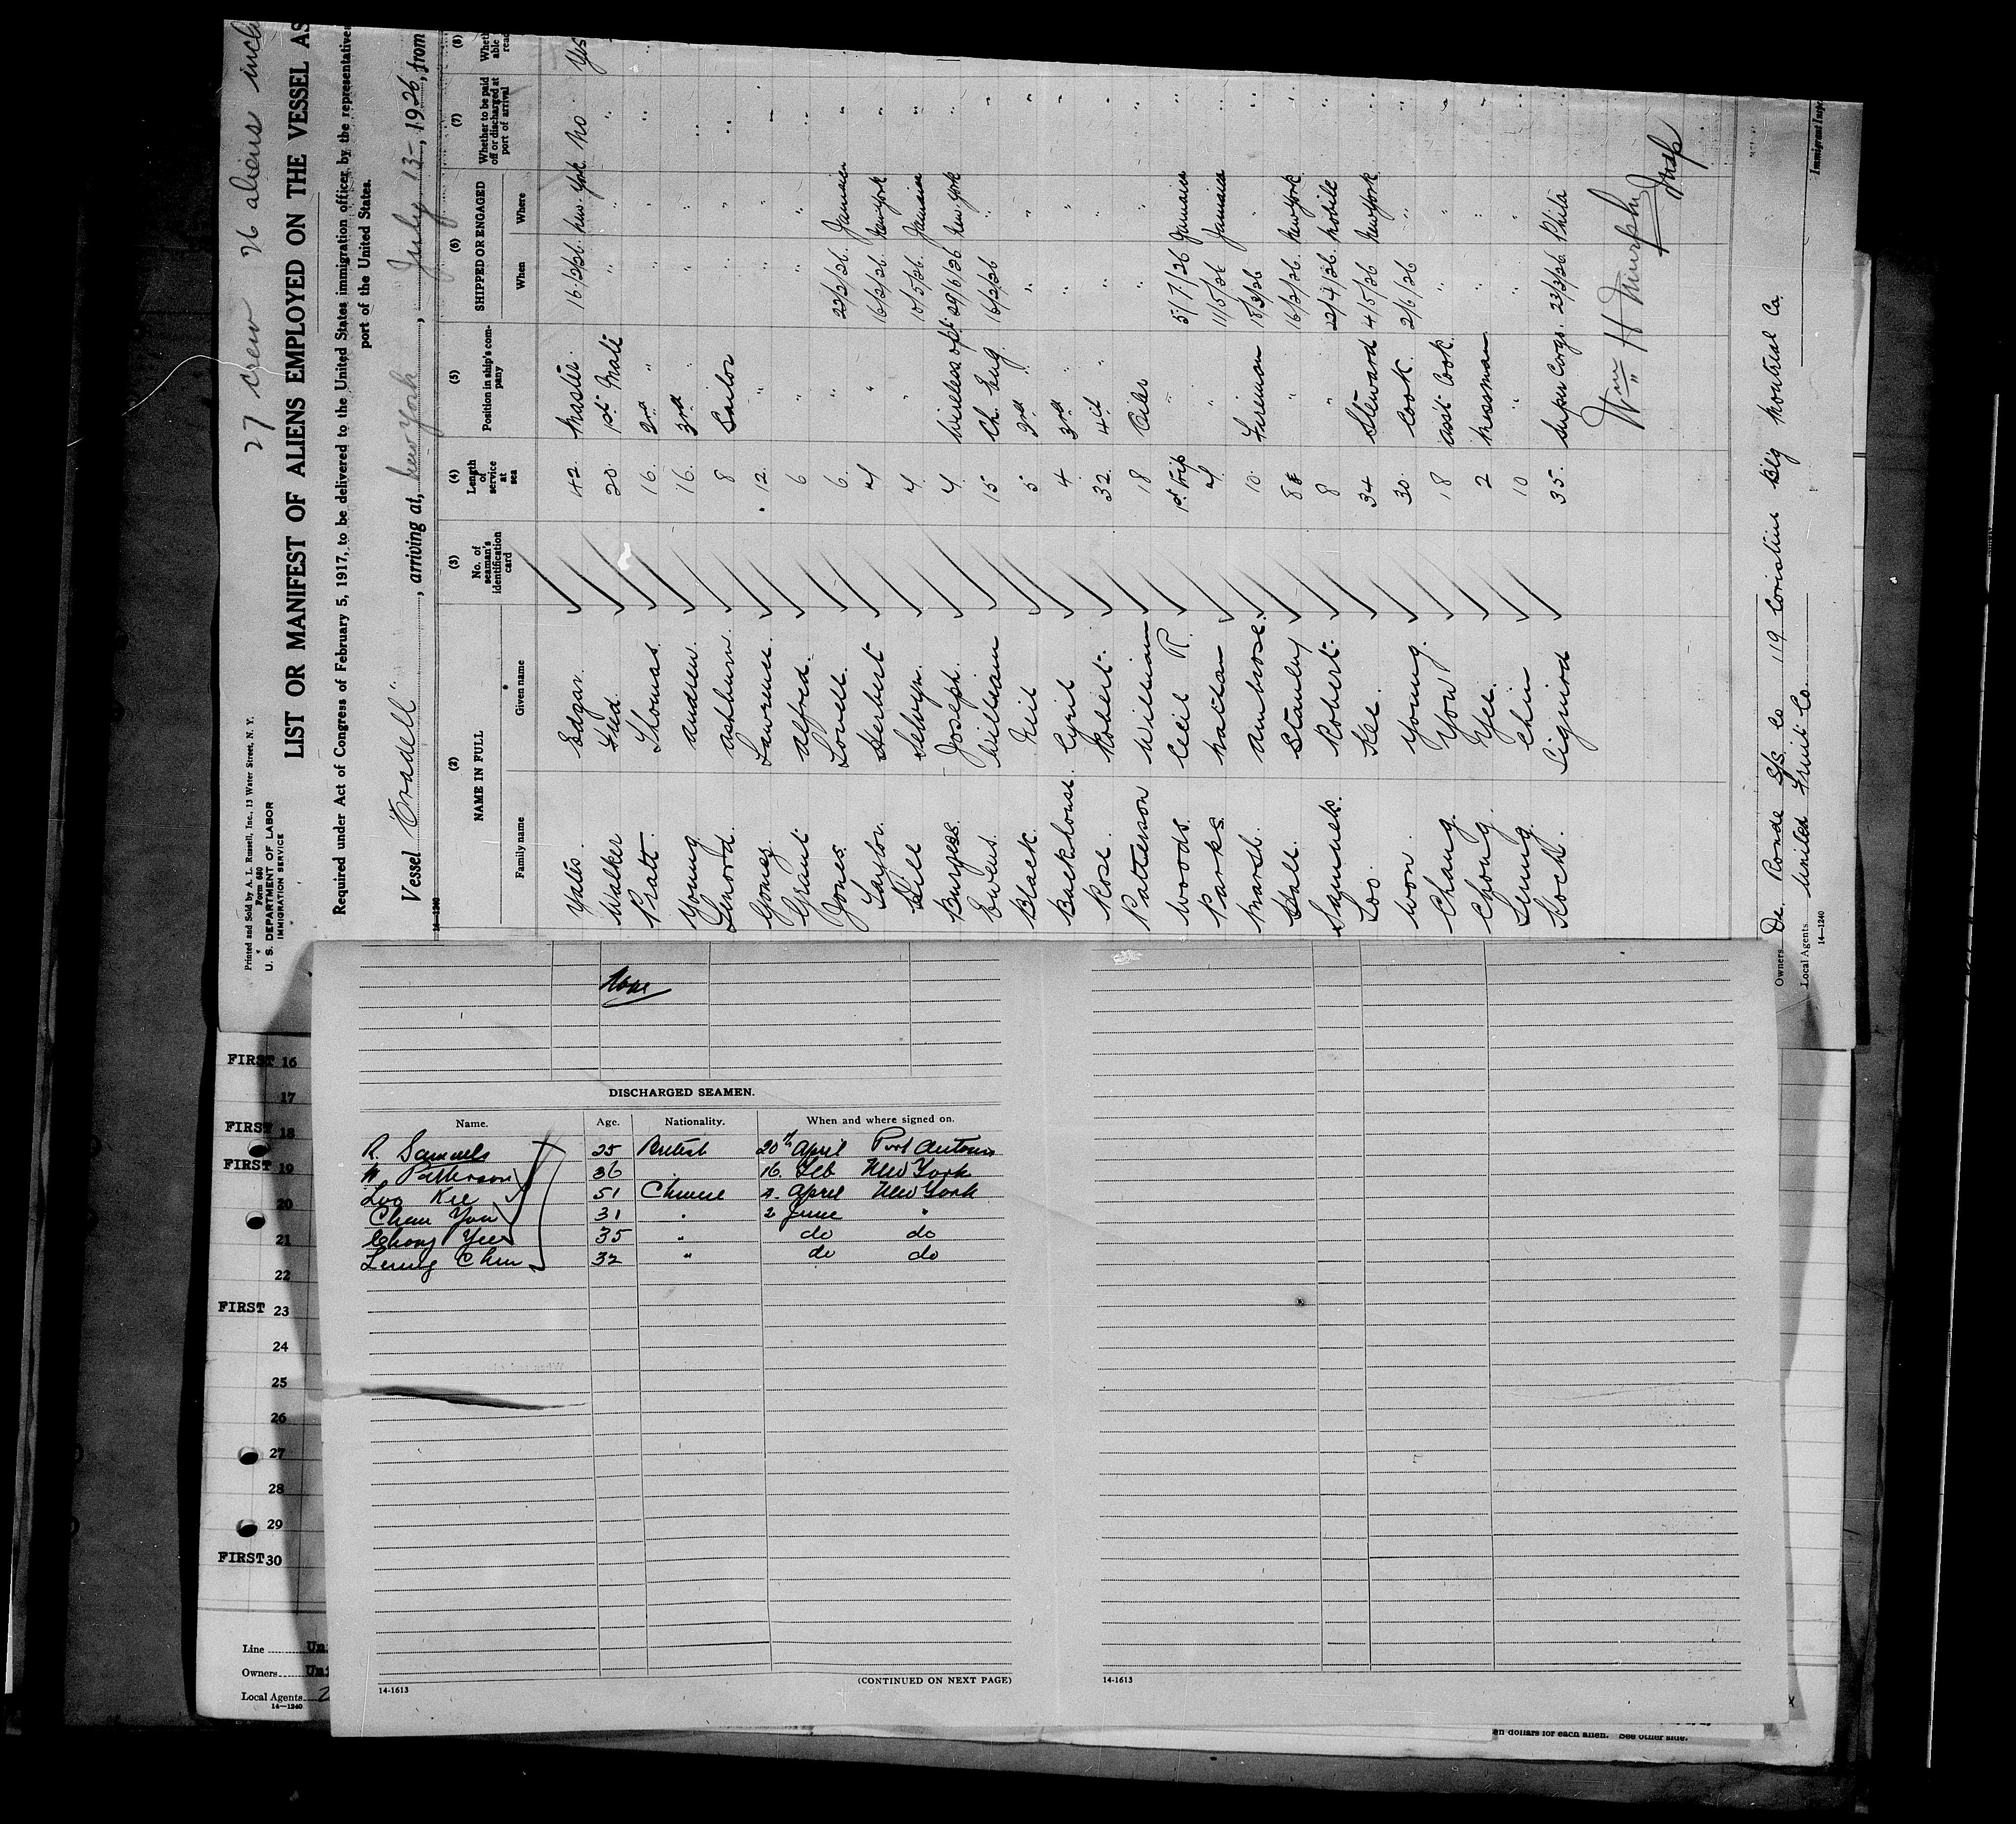 27 crew 26 aliens incl
Printed and Sold by A. L. Russell, Inc., 13 Water Street, N. Y.
Form 680
U. S. DEPARTMENT OF LABOR
IMMIGRATION SERVICE
LIST OR MANIFEST OF ALIENS EMPLOYED ON THE VESSEL AS
Required under Act of Congress of February 5, 1917, to be delivered to the United States immigration officer by the representative
port of the United States.
Vessel "Oradell", arriving at, New York, July 13, 1926, from
14—1240
(2) (3) (4) (5) (6) (7) (8)
NAME IN FULL No. of seaman's identification card Length of service at sea Position in ship's company SHIPPED OR ENGAGED Whether to be paid off or discharged at port of arrival Wheth able read
Family name Given name When Where
Yates Edgar. 42 Master. 16/2/26. New York No Yes
Walker Fred 20 1st Mate " " " "
Pratt. Thomas 16. 2nd " " " "
Young Andrew. 16. 3rd " " " "
Lenord. Ashburn. 8 Sailor " " "
Gomez. Lawrence. 12. " " " "
Grant Alfred. 6 " " " "
Jones. Lovell. 6. " 22/2/26. Jamaica "
Taylor. Herbert 4 " 16/2/26. New York "
Hill Selvyn. 4. " 10/5/26. Jamaica "
Burgess. Joseph. 4. Wireless opt. 29/6/26 New York "
Ewens. William 15 Ch. Eng. 16/2/26 " "
Black. Neil 5 2nd " " " "
Backhouse. Cyril 4 3rd " " " "
Rose. Robert. 32. 4th " " " "
Patterson William 18 Oiler " "
Woods. Cecil R. 1st Trip " 5/7/26 Jamaica "
Parks Nathan 4 " 11/5/26 Jamaica "
Marsh. Ambrose. 10. Fireman 15/3/26 " "
Hall. Stanley 8 " 16/2/26. New York "
Samuels. Robert. 8 " 22/4/26. Mobile "
Loo. Kee. 34 Steward 4/5/26 New York "
Woon. Young. 30. Cook. 2/6/26 " "
Chang. You 18 Asst Cook. " " "
Chong Yee. 2 Messman " " "
Leung. Chin 10 " " " "
Koch. Sigurod 35. Super Cargo. 23/3/26 Phila "
Wm H Murphy
Insp
Owners De Ronde S/S Co 119 Coristine Blg Montreal Ca.
Local Agents United Fruit Co.
14—1240
Immigrant Inspe
None
DISCHARGED SEAMEN.
Name. Age. Nationality. When and where signed on.
R. Samuels 25 British 20th April Port Antonio
W. Patterson 36 " 16. Feb New York
Loo Kee 51 Chinese 4. April New York
Chan You 31 " 2 June "
Chong Yee 35 " do do
Leung Chin 32 " do do
14-1613
(CONTINUED ON NEXT PAGE)
14-1613
FIRST 16
17
FIRST 18
FIRST 19
20
21
22
FIRST 23
24
25
26
27
28
29
FIRST 30
Line Un
Owners Uni
Local Agents 2
14—1240
en dollars for each alien. See other side.